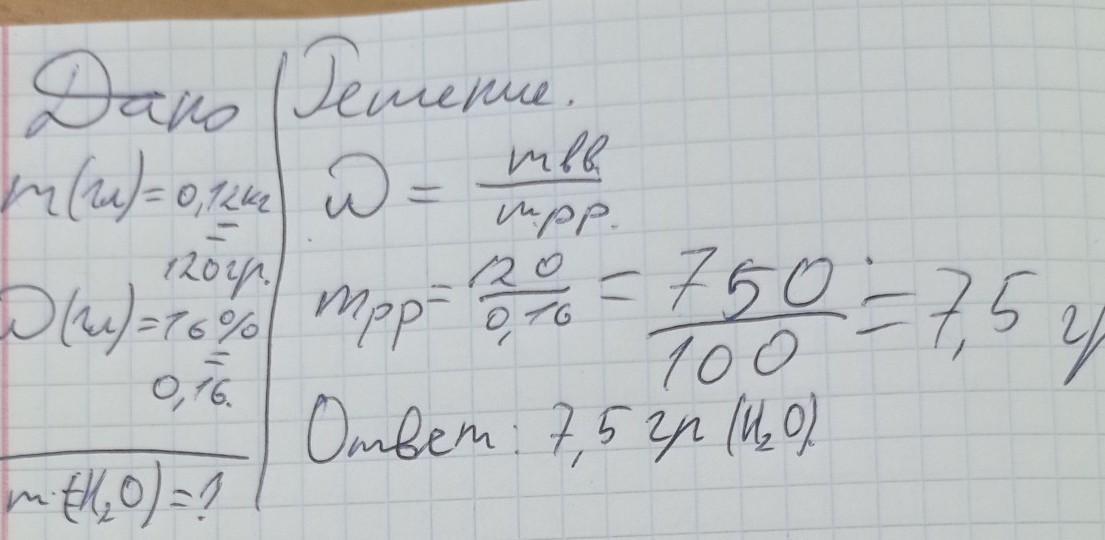 Дано
m(гл)=0,12кг
=
120гр.
ω(гл)=16%
=
0,16.
m(H₂O)=?
Решение.
ω = mвв / mрр.
mрр = 120 / 0,16 = 750 / 100 = 7,5 гр
Ответ: 7,5 гр (H₂O).